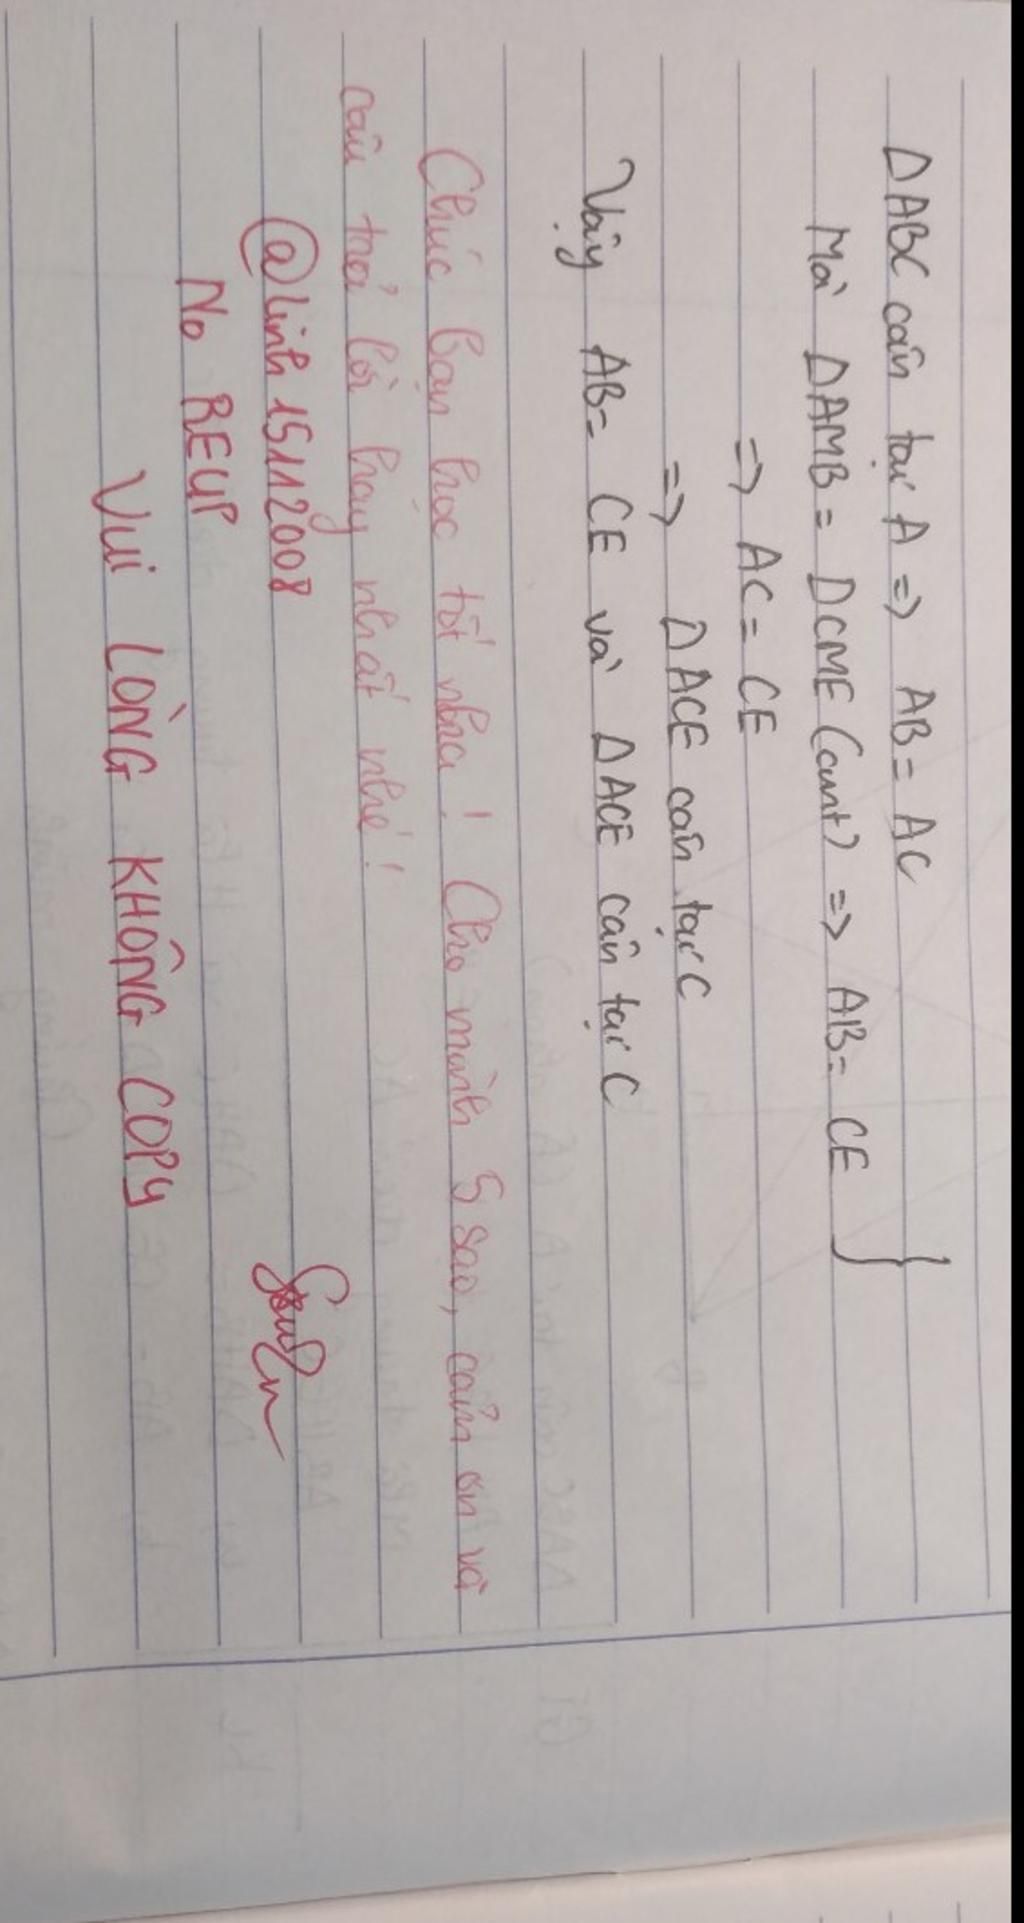 ΔABC cân tại A => AB = AC
Mà ΔAMB = ΔCME (cmt) => AB = CE }
=> AC = CE
=> ΔACE cân tại C
Vậy AB = CE và ΔACE cân tại C
Chúc bạn học tốt nha! Cho mình 5 sao, cảm ơn và
câu trả lời hay nhất nhé!
@linh15112008
No REUP
VUI LÒNG KHÔNG COPY